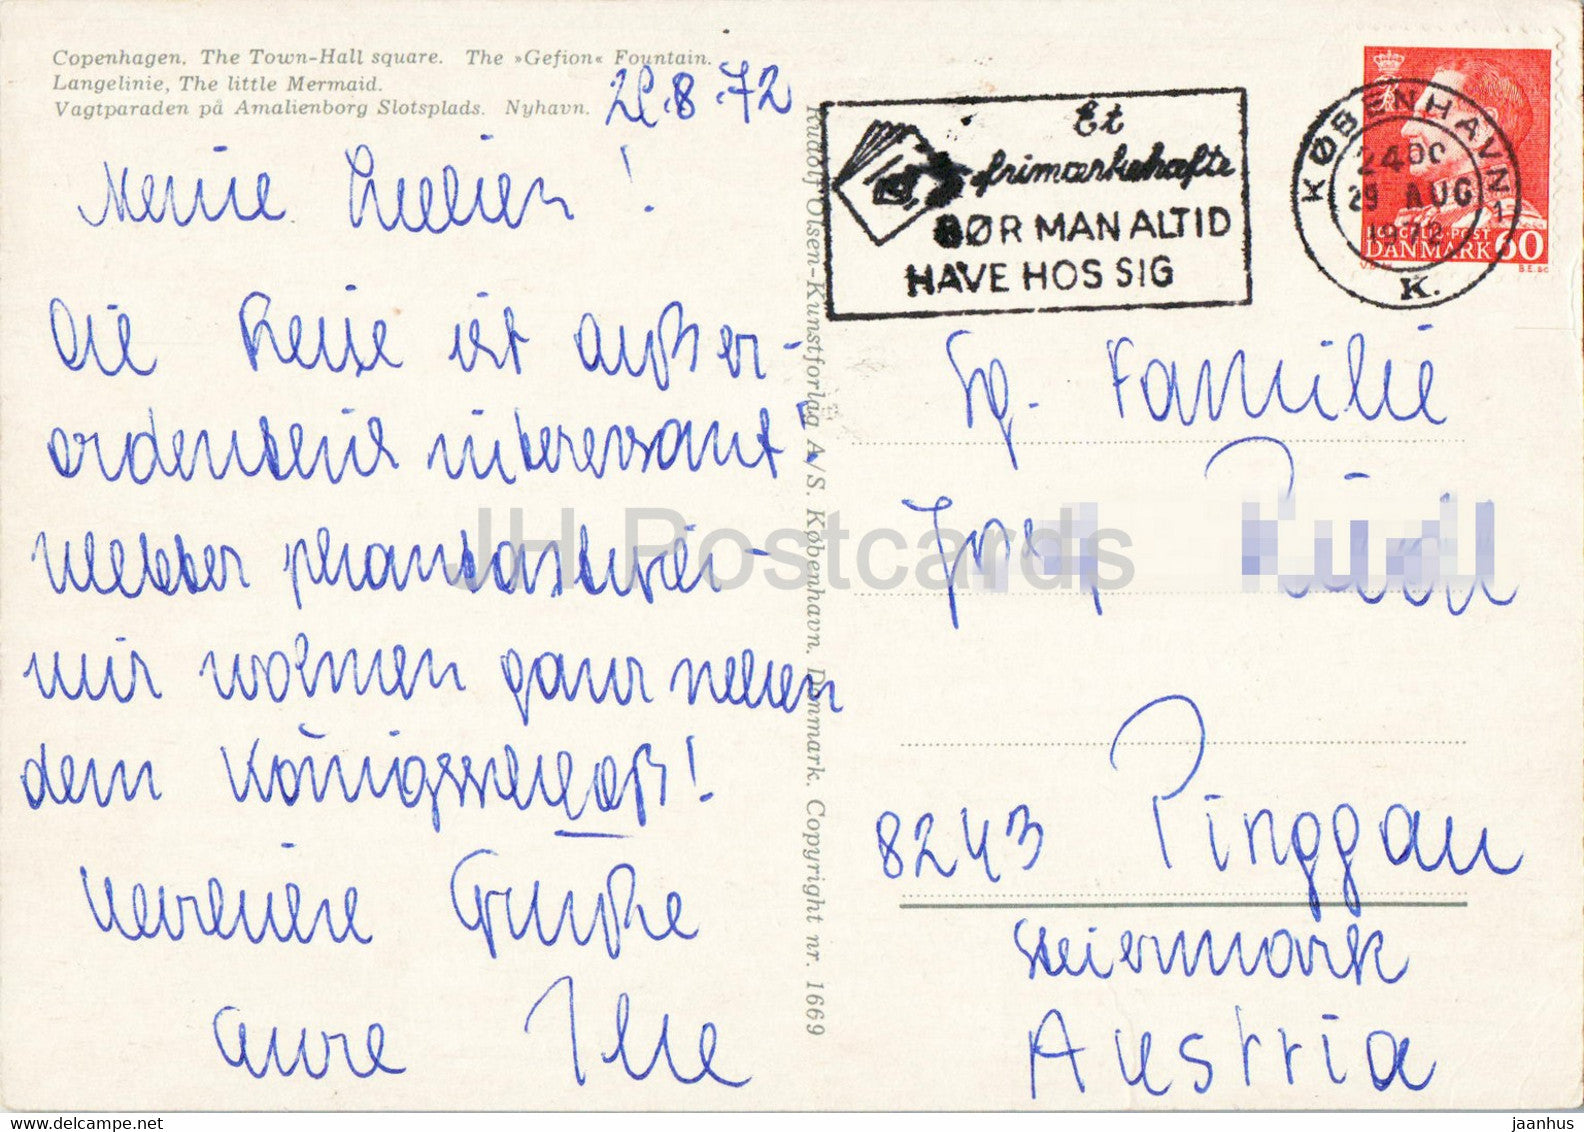 Copenhagen. The Town-Hall square. The »Gefion« Fountain.
Langelinie, The little Mermaid.
Vagtparaden på Amalienborg Slotsplads. Nyhavn.
28.8.72
Meine Lieben!
Die Reise ist außer-
ordentlich interessant,
Wetter phantastisch -
wir wohnen ganz neben
dem Königsschloß!
Herzliche Grüße
Eure Ilse
Rudolf Olsen-Kunstforlag A/S. København. Danmark. Copyright nr. 1669
Et
frimærkehæfte
BØR MAN ALTID
HAVE HOS SIG
KØBENHAVN 1
2400
29 AUG
1972
K.
DANMARK 60
Fam. Familie
8243 Pinggau
Steiermark
Austria
JH Postcards
www.delcampe.net
jaanhus